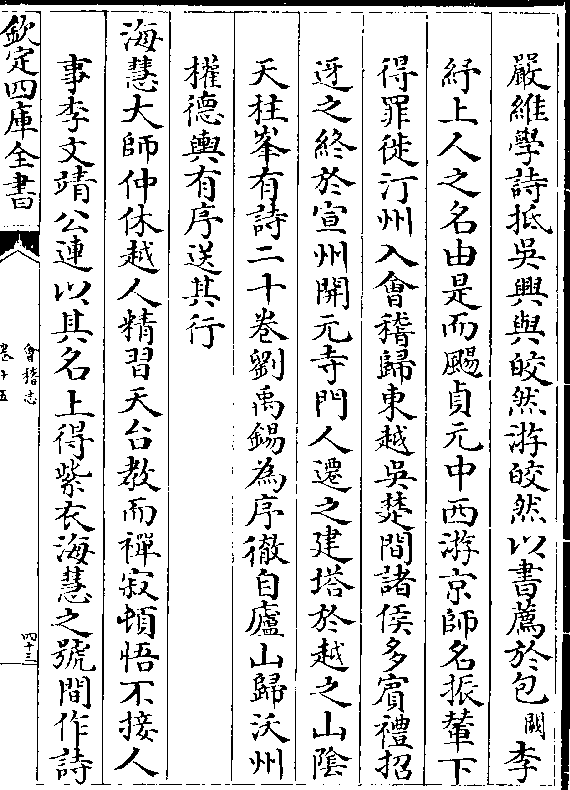 嚴維學詩抵吳興與皎然游皎然以書薦於包闕李
紓上人之名由是而颺貞元中西游京師名振輦下
得罪徙汀州入會稽歸東越吳楚間諸侯多賓禮招
迓之終於宣州開元寺門人遷之建塔於越之山陰
天柱峯有詩二十卷劉禹錫為序徹自廬山歸沃州
權德輿有序送其行
海慧大師仲休越人精習天台教而禪寂頓悟不接人
事李文靖公連以其名上得紫衣海慧之號間作詩
欽定四庫全書
會稽志
卷十五
四十三